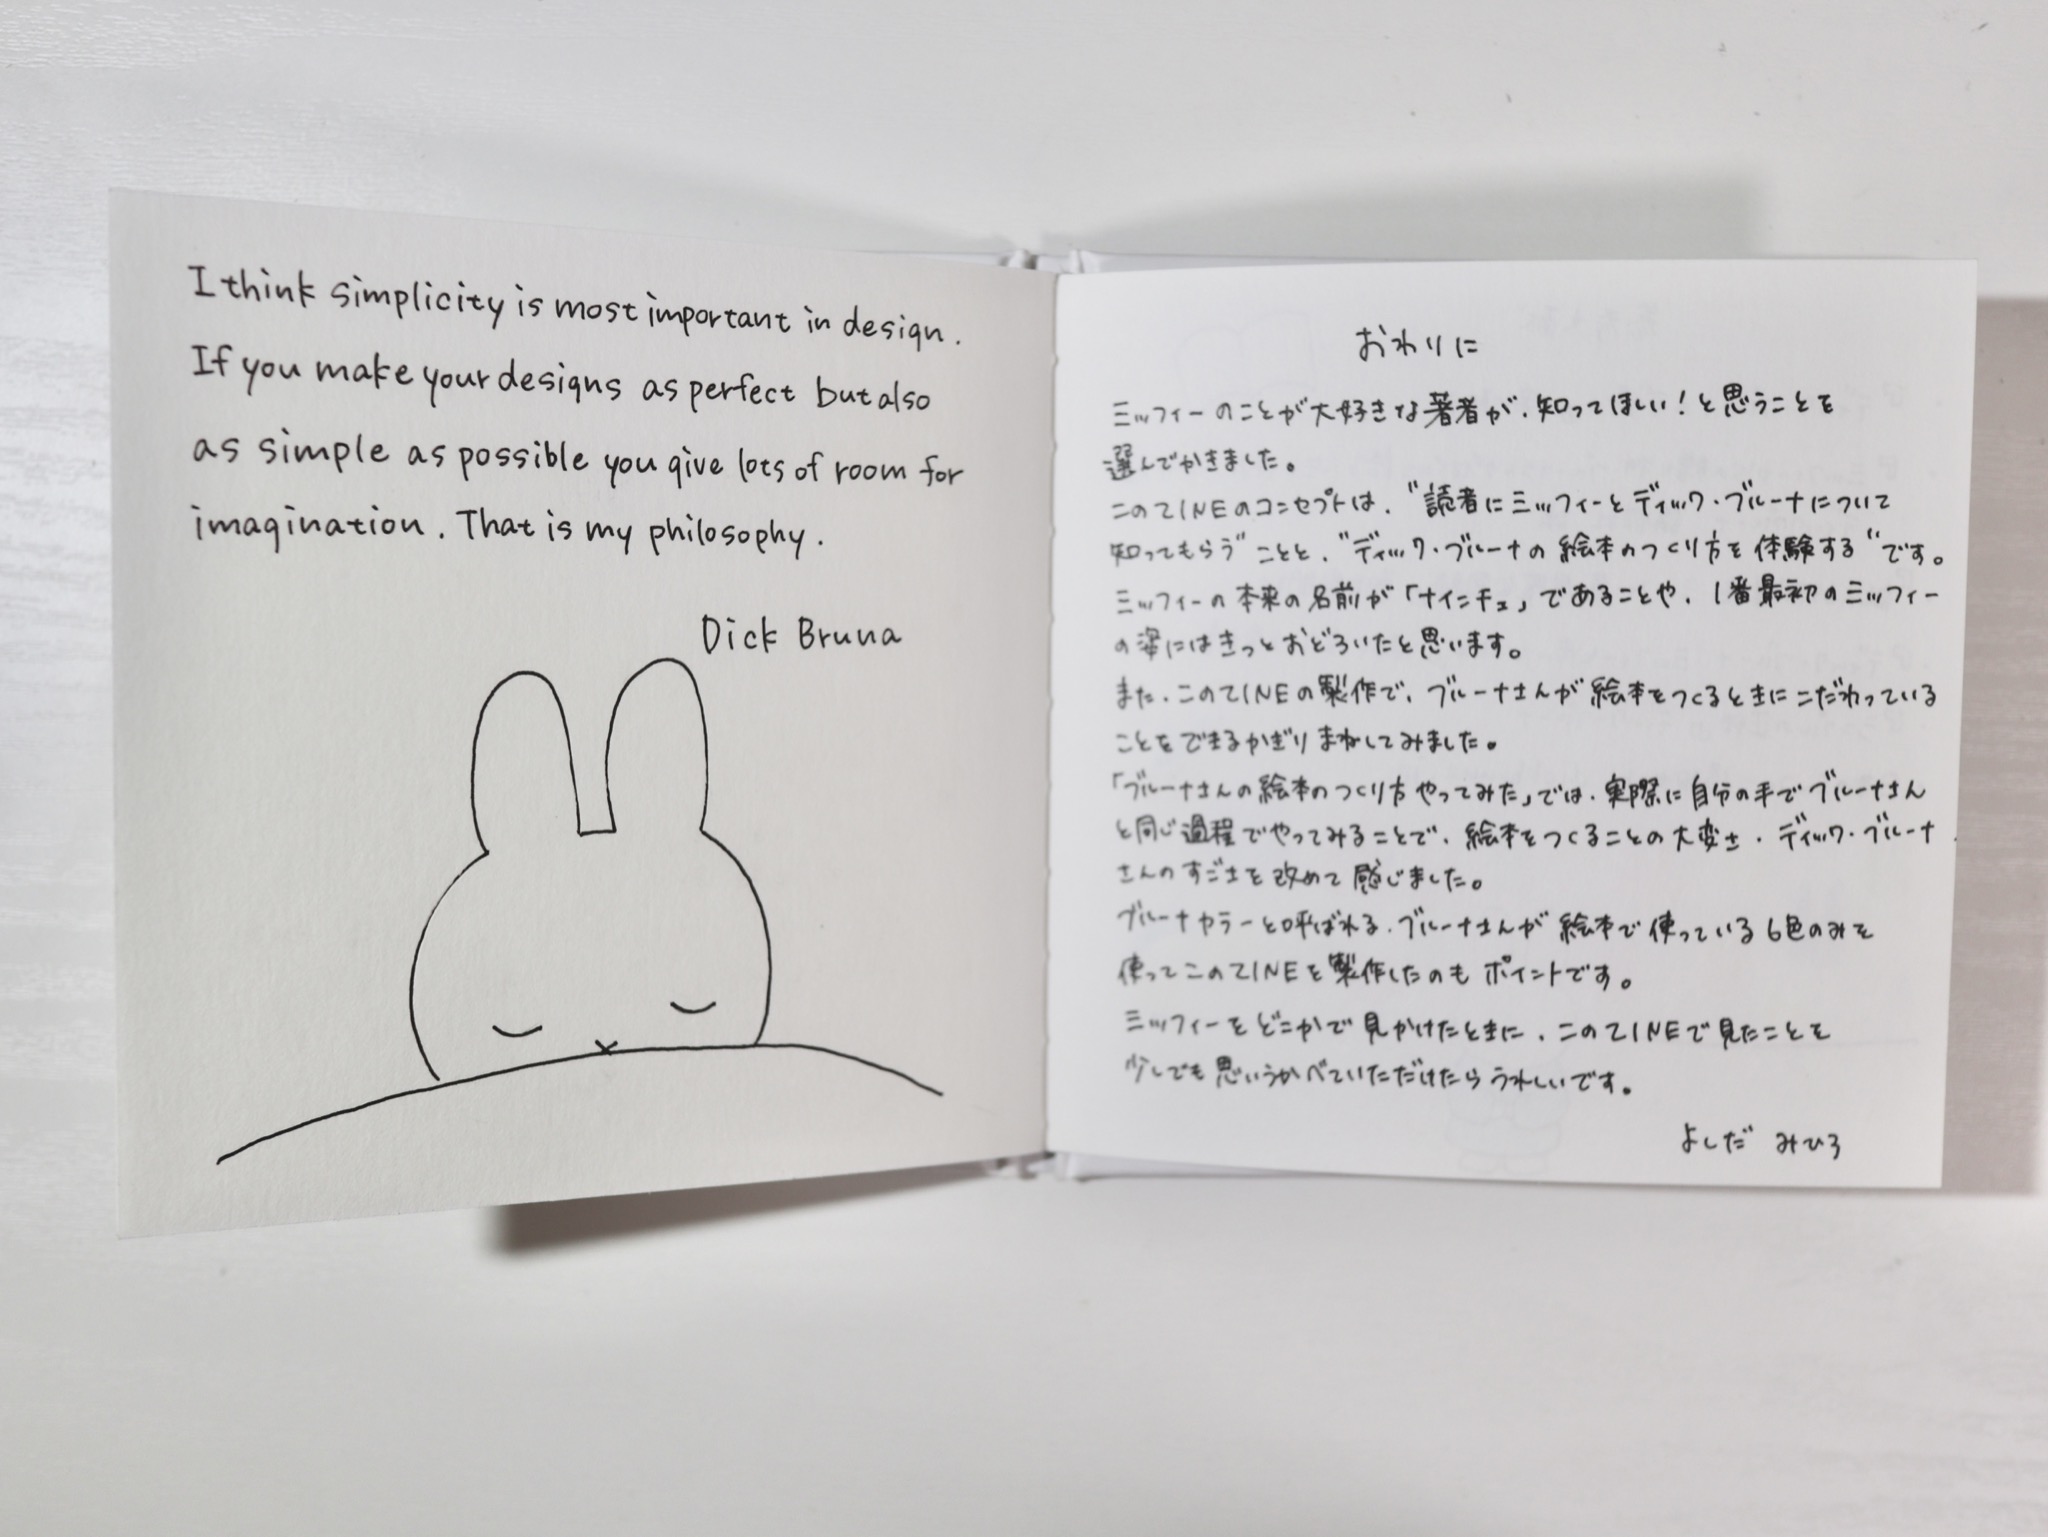 I think simplicity is most important in design.
If you make your designs as perfect but also
as simple as possible you give lots of room for
imagination. That is my philosophy.
Dick Bruna
おわりに
ミッフィーのことが大好きな著者が、知ってほしい!と思うことを
選んでかきました。
このZINEのコンセプトは、"読者にミッフィーとディック・ブルーナについて
知ってもらう"ことと、"ディック・ブルーナの絵本のつくり方を体験する"です。
ミッフィーの本来の名前が「ナインチェ」であることや、1番最初のミッフィー
の姿にはきっとおどろいたと思います。
また、このZINEの製作で、ブルーナさんが絵本をつくるときにこだわっている
ことをできるかぎりまねしてみました。
「ブルーナさんの絵本のつくり方やってみた」では、実際に自分の手でブルーナさん
と同じ過程でやってみることで、絵本をつくることの大変さ、ディック・ブルーナ
さんのすごさを改めて感じました。
ブルーナカラーと呼ばれる、ブルーナさんが絵本で使っている6色のみを
使ってこのZINEを製作したのもポイントです。
ミッフィーをどこかで見かけたときに、このZINEで見たことを
少しでも思いうかべていただけたらうれしいです。
よしだ みひろ